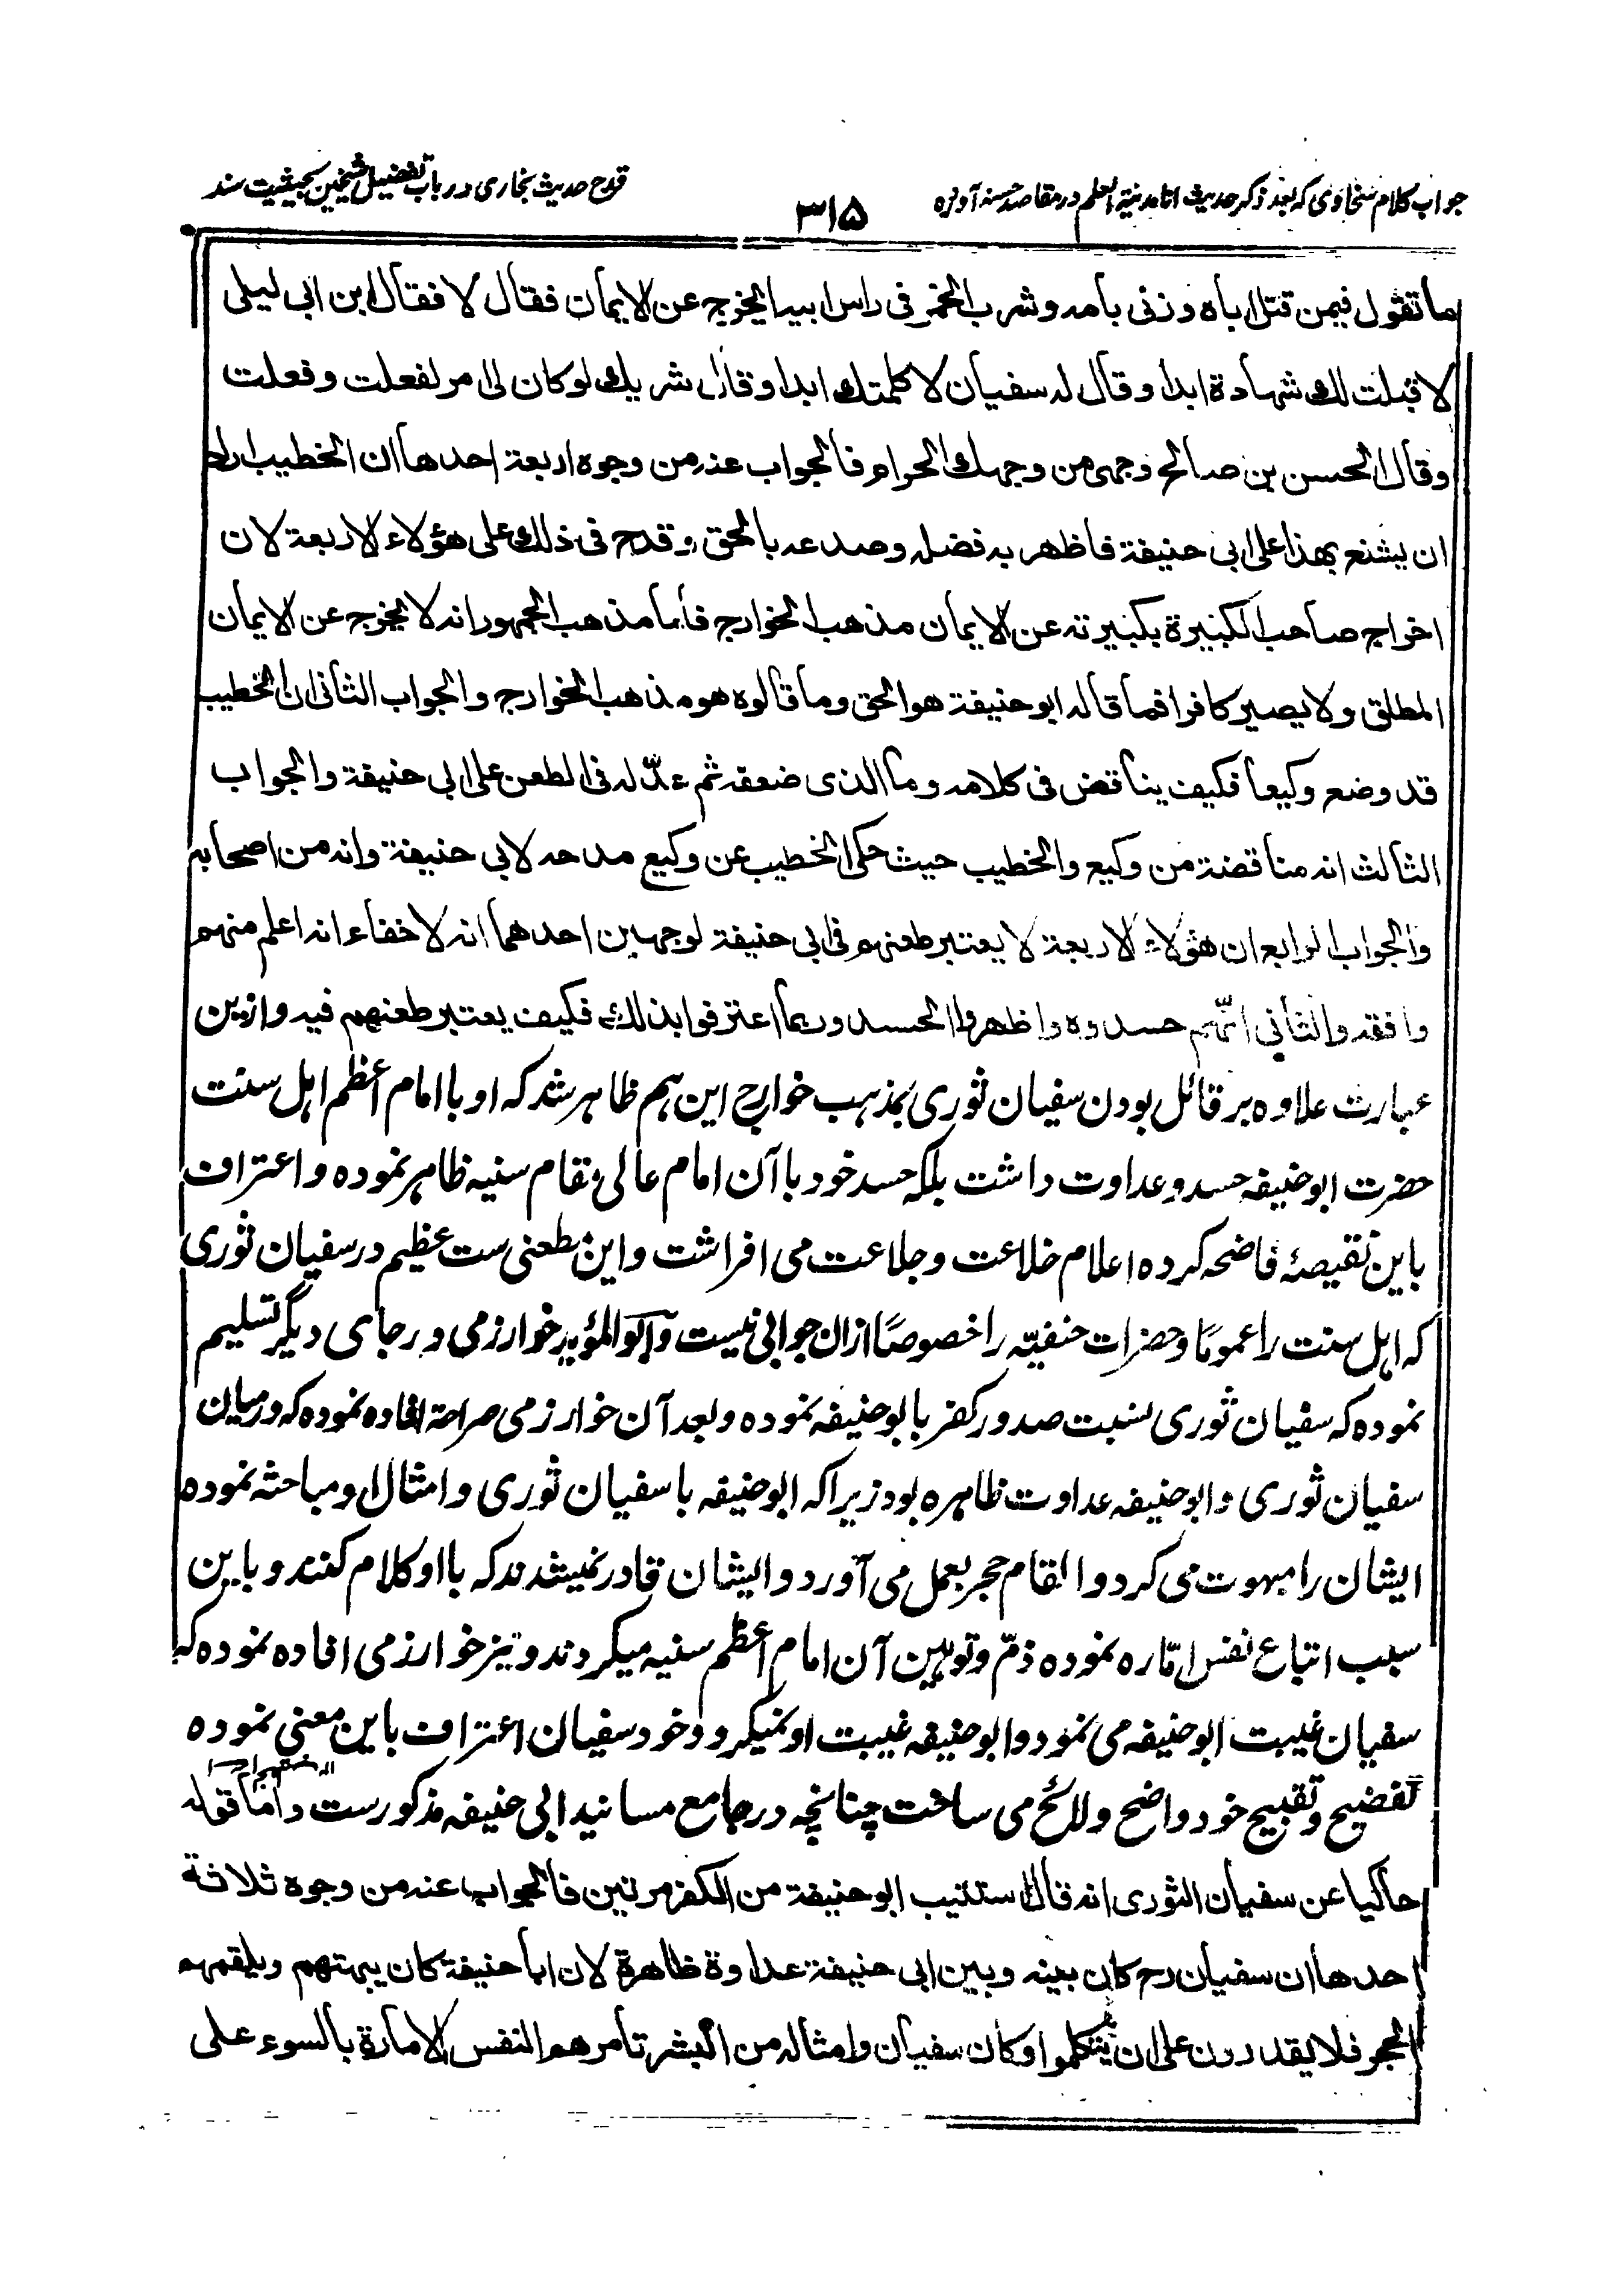 جواب کلام سخاوی که بعد ذکر حدیث انا مدینة العلم در مقاصد حسنه آورده
۳۱۵
قدح حدیث بخاری در باب تفضیل شیخین بحیثیت سند
ما تقول فیمن قتل اباه وزنی بامه وشرب الخمر فی راس ابیه ایخرج عن الایمان فقال لا فقال ابن ابی لیلی
لا قبلت لك شهادة ابدا وقال له سفیان لا کلمتك ابدا وقال شریك لو کان لی امر لفعلت وفعلت
وقال الحسن بن صالح وجهی من وجهك الحرام فالجواب عنه من وجوه اربعة احدها ان الخطیب اراد
ان یشنع بهذا علی ابی حنیفة فاظهر به فضله وصدعه بالحق وقدح فی ذلك علی هؤلاء الاربعة لان
اخراج صاحب الکبیرة بکبیرته عن الایمان مذهب الخوارج فاما مذهب الجمهور انه لا یخرج عن الایمان
المطلق ولا یصیر کافرا فما قاله ابو حنیفة هو الحق وما قالوه هو مذهب الخوارج والجواب الثانی ان الخطیب
قد وضع وکیعا فکیف یناقض فی کلامه وما الذی ضعفه ثم عدّله فی الطعن علی ابی حنیفة والجواب
الثالث انه مناقضة من وکیع والخطیب حیث حکی الخطیب عن وکیع مدحه لابی حنیفة وانه من اصحابه
والجواب الرابع ان هؤلاء الاربعة لا یعتبر طعنهم فی ابی حنیفة لوجهین احدهما انه لا خفاء انه اعلم منهم
وافقه والثانی انّهم حسدوه واظهروا الحسد وربما اعترفوا بذلك فکیف یعتبر طعنهم فیه وازین
عبارت علاوه بر قائل بودن سفیان ثوری بمذهب خوارج این هم ظاهر شد که او با امام اعظم اهل سنت
حضرت ابو حنیفه حسد و عداوت داشت بلکه حسد خود با آن امام عالی مقام سنیه ظاهر نموده و اعتراف
باین نقیصۀ فاضحه کرده اعلام خلاعت و جلاعت می افراشت و این طعنی ست عظیم در سفیان ثوری
که اهل سنت را عموماً و حضرات حنفیّه را خصوصاً ازان جوابی نیست و ابو المؤید خوارزمی در جای دیگر تسلیم
نموده که سفیان ثوری نسبت صدور کفر بابو حنیفه نموده و بعد آن خوارزمی صراحة افاده نموده که درمیان
سفیان ثوری و ابو حنیفه عداوت ظاهره بود زیرا که ابو حنیفه با سفیان ثوری و امثال او مباحثه نموده
ایشان را مبهوت می کرد و القام حجر بعمل می آورد و ایشان قادر نمیشدند که با او کلام کنند و باین
سبب اتباع نفس امّاره نموده ذمّ و توهین آن امام اعظم سنیه میکردند و نیز خوارزمی افاده نموده که
سفیان غیبت ابو حنیفه می نمود و ابو حنیفه غیبت او نمیکرد و خود سفیان اعتراف باین معنی نموده
تفضیح و تقبیح خود واضح و لائح می ساخت چنانچه در جامع مسانید ابی حنیفه مذکورست واما قوله
حاکیا عن سفیان الثوری انه قال استتیب ابو حنیفة من الکفر مرتین فالجواب عنه من وجوه ثلاثة
احدها ان سفیان رح کان بینه وبین ابی حنیفة عداوة ظاهرة لان ابا حنیفة کان یبهتهم ویلقمهم
الحجر فلا یقدرون علی ان یتکلموا وکان سفیان وامثاله من البشر تأمرهم النفس الامارة بالسوء علی